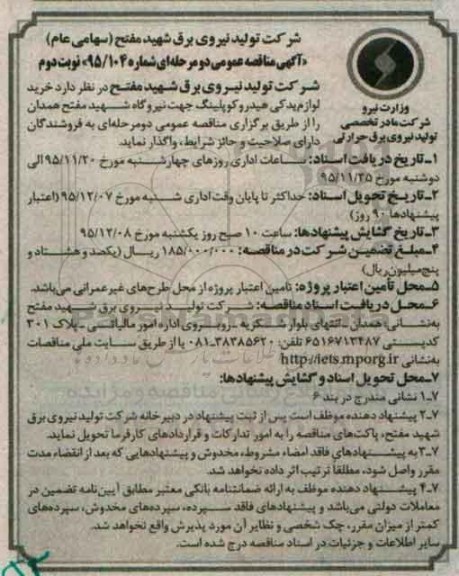 شرکت تولید نیروی برق شهید مفتح (سهامی عام)
«آگهی مناقصه عمومی دو مرحله‌ای شماره ۹۵/۱۰۴» نوبت دوم
وزارت نیرو
شرکت مادر تخصصی
تولید نیروی برق حرارتی
شرکت تولید نیـروی برق شهیـد مفتـح در نظر دارد خرید
لوازم یدکی هیدروکوپلینگ جهت نیروگاه شـهید مفتح همدان
را از طریق برگزاری مناقصه عمومی دومرحله‌ای به فروشندگان
دارای صلاحیت و حائز شرایط، واگذار نماید.
۱ـ تاریخ دریافت اسناد: ساعات اداری روزهای چهارشـنبه مورخ ۹۵/۱۱/۲۰ الی
دوشنبه مورخ ۹۵/۱۱/۲۵
۲ـ تاریـخ تحویل اسـناد: حداکثر تا پایان وقت اداری شـنبه مورخ ۹۵/۱۲/۰۷ (اعتبار
پیشنهادها ۹۰ روز)
۳ـ تاریخ گشایش پیشنهادها: ساعت ۱۰ صبح روز یکشنبه مورخ ۹۵/۱۲/۰۸
۴ـ مبلغ تضمین شرکت در مناقصه: ۱۸۵/۰۰۰/۰۰۰ ریـال (یکصد و هشـتاد و
پنج میلیون ریال)
۵ـ محل تأمین اعتبار پروژه: تامین اعتبار پروژه از محل طرح‌های غیرعمرانی می‌باشد.
۶ـ محل دریافت اسناد مناقصه: شرکت تولیـد نیـروی برق شـهید مفتح
به‌نشانی: همدان ـ انتهای بلوار شـکریه ـ روبـروی اداره امور مالیاتـی ـ پلاک ۳۰۱
کدپسـتی ۶۵۱۶۷۱۳۴۸۷ تلفن: ۳۸۳۸۵۶۲۰-۰۸۱ یا از طریق سـایت ملی مناقصات
به‌نشانی http://iets.mporg.ir
۷ـ محل تحویل اسناد و گشایش پیشنهادها:
۷ـ۱ نشانی مندرج در بند ۶
۷ـ۲ پیشنهاد دهنده موظف است پس از ثبت پیشنهاد در دبیرخانه شرکت تولید نیروی برق
شهید مفتح، پاکت‌های مناقصه را به امور تدارکات و قراردادهای کارفرما تحویل نماید.
۷ـ۳ به پیشـنهادهای فاقد امضاء مشروط، مخدوش و پیشنهادهایی که بعد از انقضاء مدت
مقرر واصل شود، مطلقاً ترتیب اثر داده نخواهد شد.
۷ـ۴ پیشـنهاد دهنده موظف به ارائه ضمانتنامه بانکی معتبر مطابق آیین‌نامه تضمین در
معاملات دولتی می‌باشد و پیشنهادهای فاقد سـپرده، سپرده‌های مخدوش، سپرده‌های
کمتر از میزان مقرر، چک شخصی و نظایر آن مورد پذیرش واقع نخواهد شد.
سایر اطلاعات و جزئیات در اسناد مناقصه درج شده است.